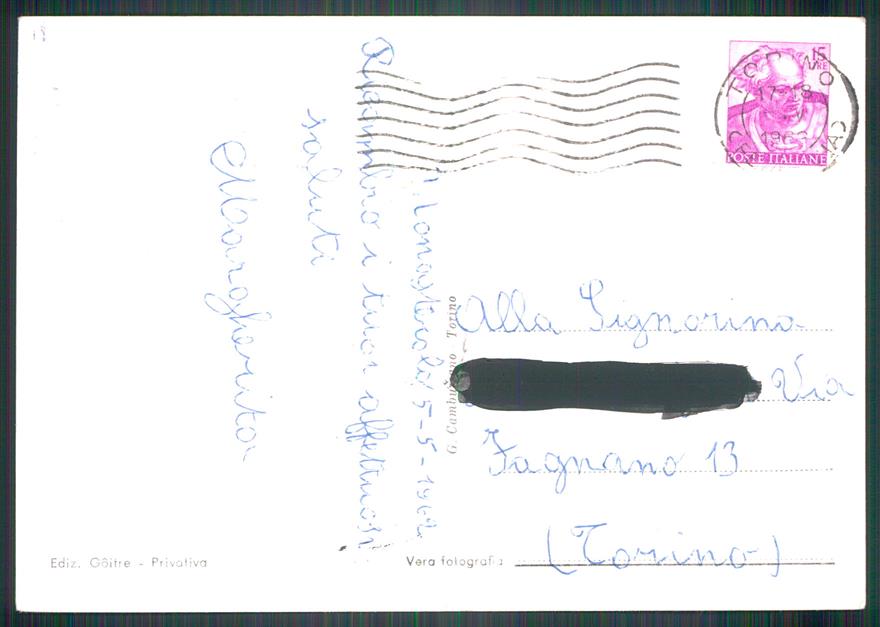 5-5-1962
Ricambio i tuoi affettuosi
saluti
Margherita
Alla Signorina
Via
Fagnano 13
(Torino)
Ediz. Gôitre - Privativa
Vera fotografia
Torino
15
LIRE
POSTE ITALIANE
TORINO
17-18